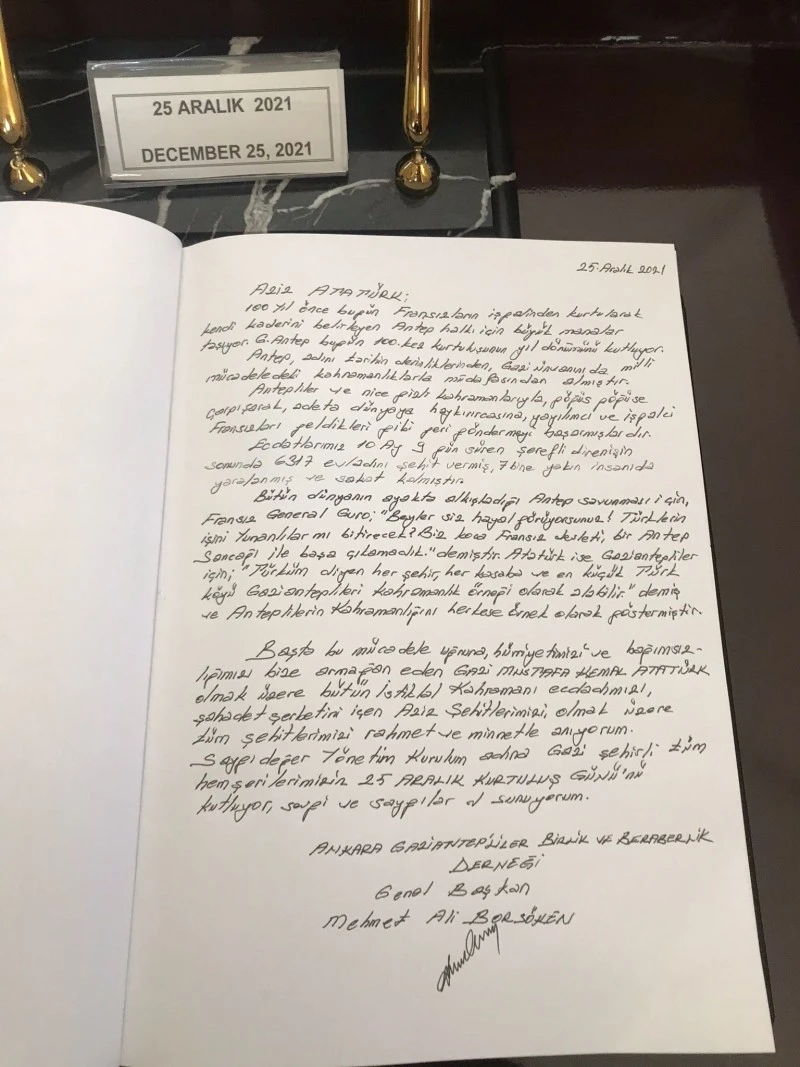 25 ARALIK 2021
DECEMBER 25, 2021
25.Aralık 2021
Aziz ATATÜRK;
100 Yıl önce bugün Fransızların işgalinden kurtularak
kendi kaderini belirleyen Antep halkı için büyük manalar
taşıyor. G.Antep bugün 100.kez kurtuluşunun yıl dönümünü kutluyor.
Antep, adını tarihin derinliklerinden, Gazi ünvanını da milli
mücadeledeki kahramanlıklarla müdafasından almıştır.
Antepliler ve nice gizli kahramanlarıyla, göğüs göğüse
çarpışarak, adeta dünyaya haykırırcasına, yayılımcı ve işgalci
Fransızları geldikleri gibi geri göndermeyi başarmışlardır.
Ecdatlarımız 10 Ay 9 gün süren şerefli direnişin
sonunda 6317 evladını şehit vermiş, 7 bine yakın insanıda
yaralanmış ve sakat kalmıştır.
Bütün dünyanın ayakta alkışladığı Antep savunması için,
Fransız General Guro; "Beyler siz hayal görüyorsunuz! Türklerin
işini Yunanlılar mı bitirecek? Biz koca Fransız devleti, bir Antep
Sancağı ile başa çıkamadık." demiştir. Atatürk ise Gaziantepliler
için; "Türküm diyen her şehir, her kasaba ve en küçük Türk
köyü Gaziantepleri kahramanlık örneği olarak alabilir." demiş
ve Anteplilerin Kahramanlığını herkese örnek olarak göstermiştir.
Başta bu mücadele uğruna, hürriyetimizi ve bağımsız-
lığımızı bize armağan eden GAZİ MUSTAFA KEMAL ATATÜRK
olmak üzere bütün İstiklal Kahramanı ecdadımızı,
şahadet şerbetini içen Aziz Şehitlerimizi, olmak üzere
tüm şehitlerimizi rahmet ve minnetle anıyorum.
Saygıdeğer Yönetim Kurulum adına Gazi şehirli tüm
hemşerilerimizin 25 ARALIK KURTULUŞ GÜNÜ'nü
kutluyor, sevgi ve saygılar sunuyorum.
ANKARA GAZİANTEPLİLER BİRLİK VE BERABERLİK
DERNEĞİ
Genel Başkan
Mehmet Ali BORSÖKEN